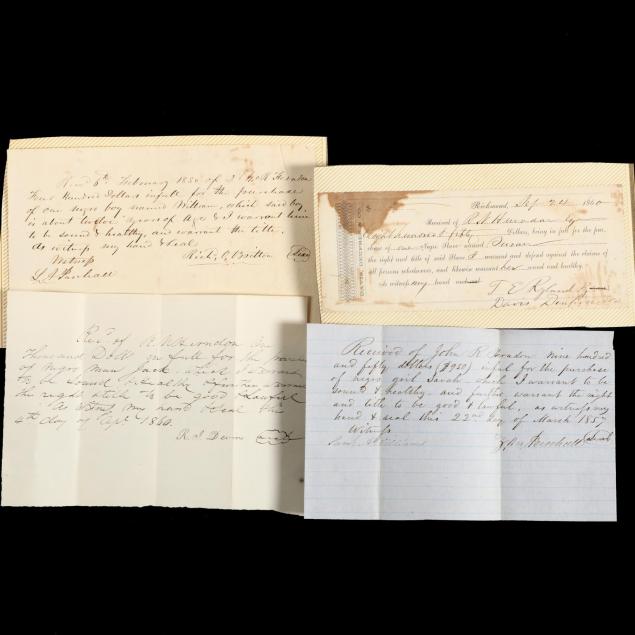 Recd 6th February 1850 of J R Herndon
Four Hundred Dollars infull for the purchase
of one negro boy named William, which said boy
is about twelve years of Age & I warrant him
to be sound & healthy, and warrant the title.
As witness my hand & seal
Witness
Rich. C. Britton Seal
Richmond, Sep 24 1860
Received of R. N. Herndon Esq
Eight hundred & fifty Dollars, being in full for the purchase
of one Negro Slave named Susan
the right and title of said Slave I warrant and defend against the claims of
all persons whatsoever, and likewise warrant her sound and healthy.
As witness my hand
T E Ryland for
Davis Deupree & Co
DAVIS, DEUPREE & CO.
Recd. of R N Herndon One
Thousand Doll in full for the purchase
of Negro Man Jack which I warrant
to be sound & healthy & further warrant
the right & title to be good & lawful
As witness my hand & seal this
4th day of Apl 1860.
R. J. seal
Received of John R Herndon nine hundred
and fifty dollars ($950) infull for the purchase
of negro girl Sarah which I warrant to be
sound & healthy and further warrant the right
and title to be good & lawful, as witness my
hand & seal this 22nd day of March 1857
Witness
Williams
Seal